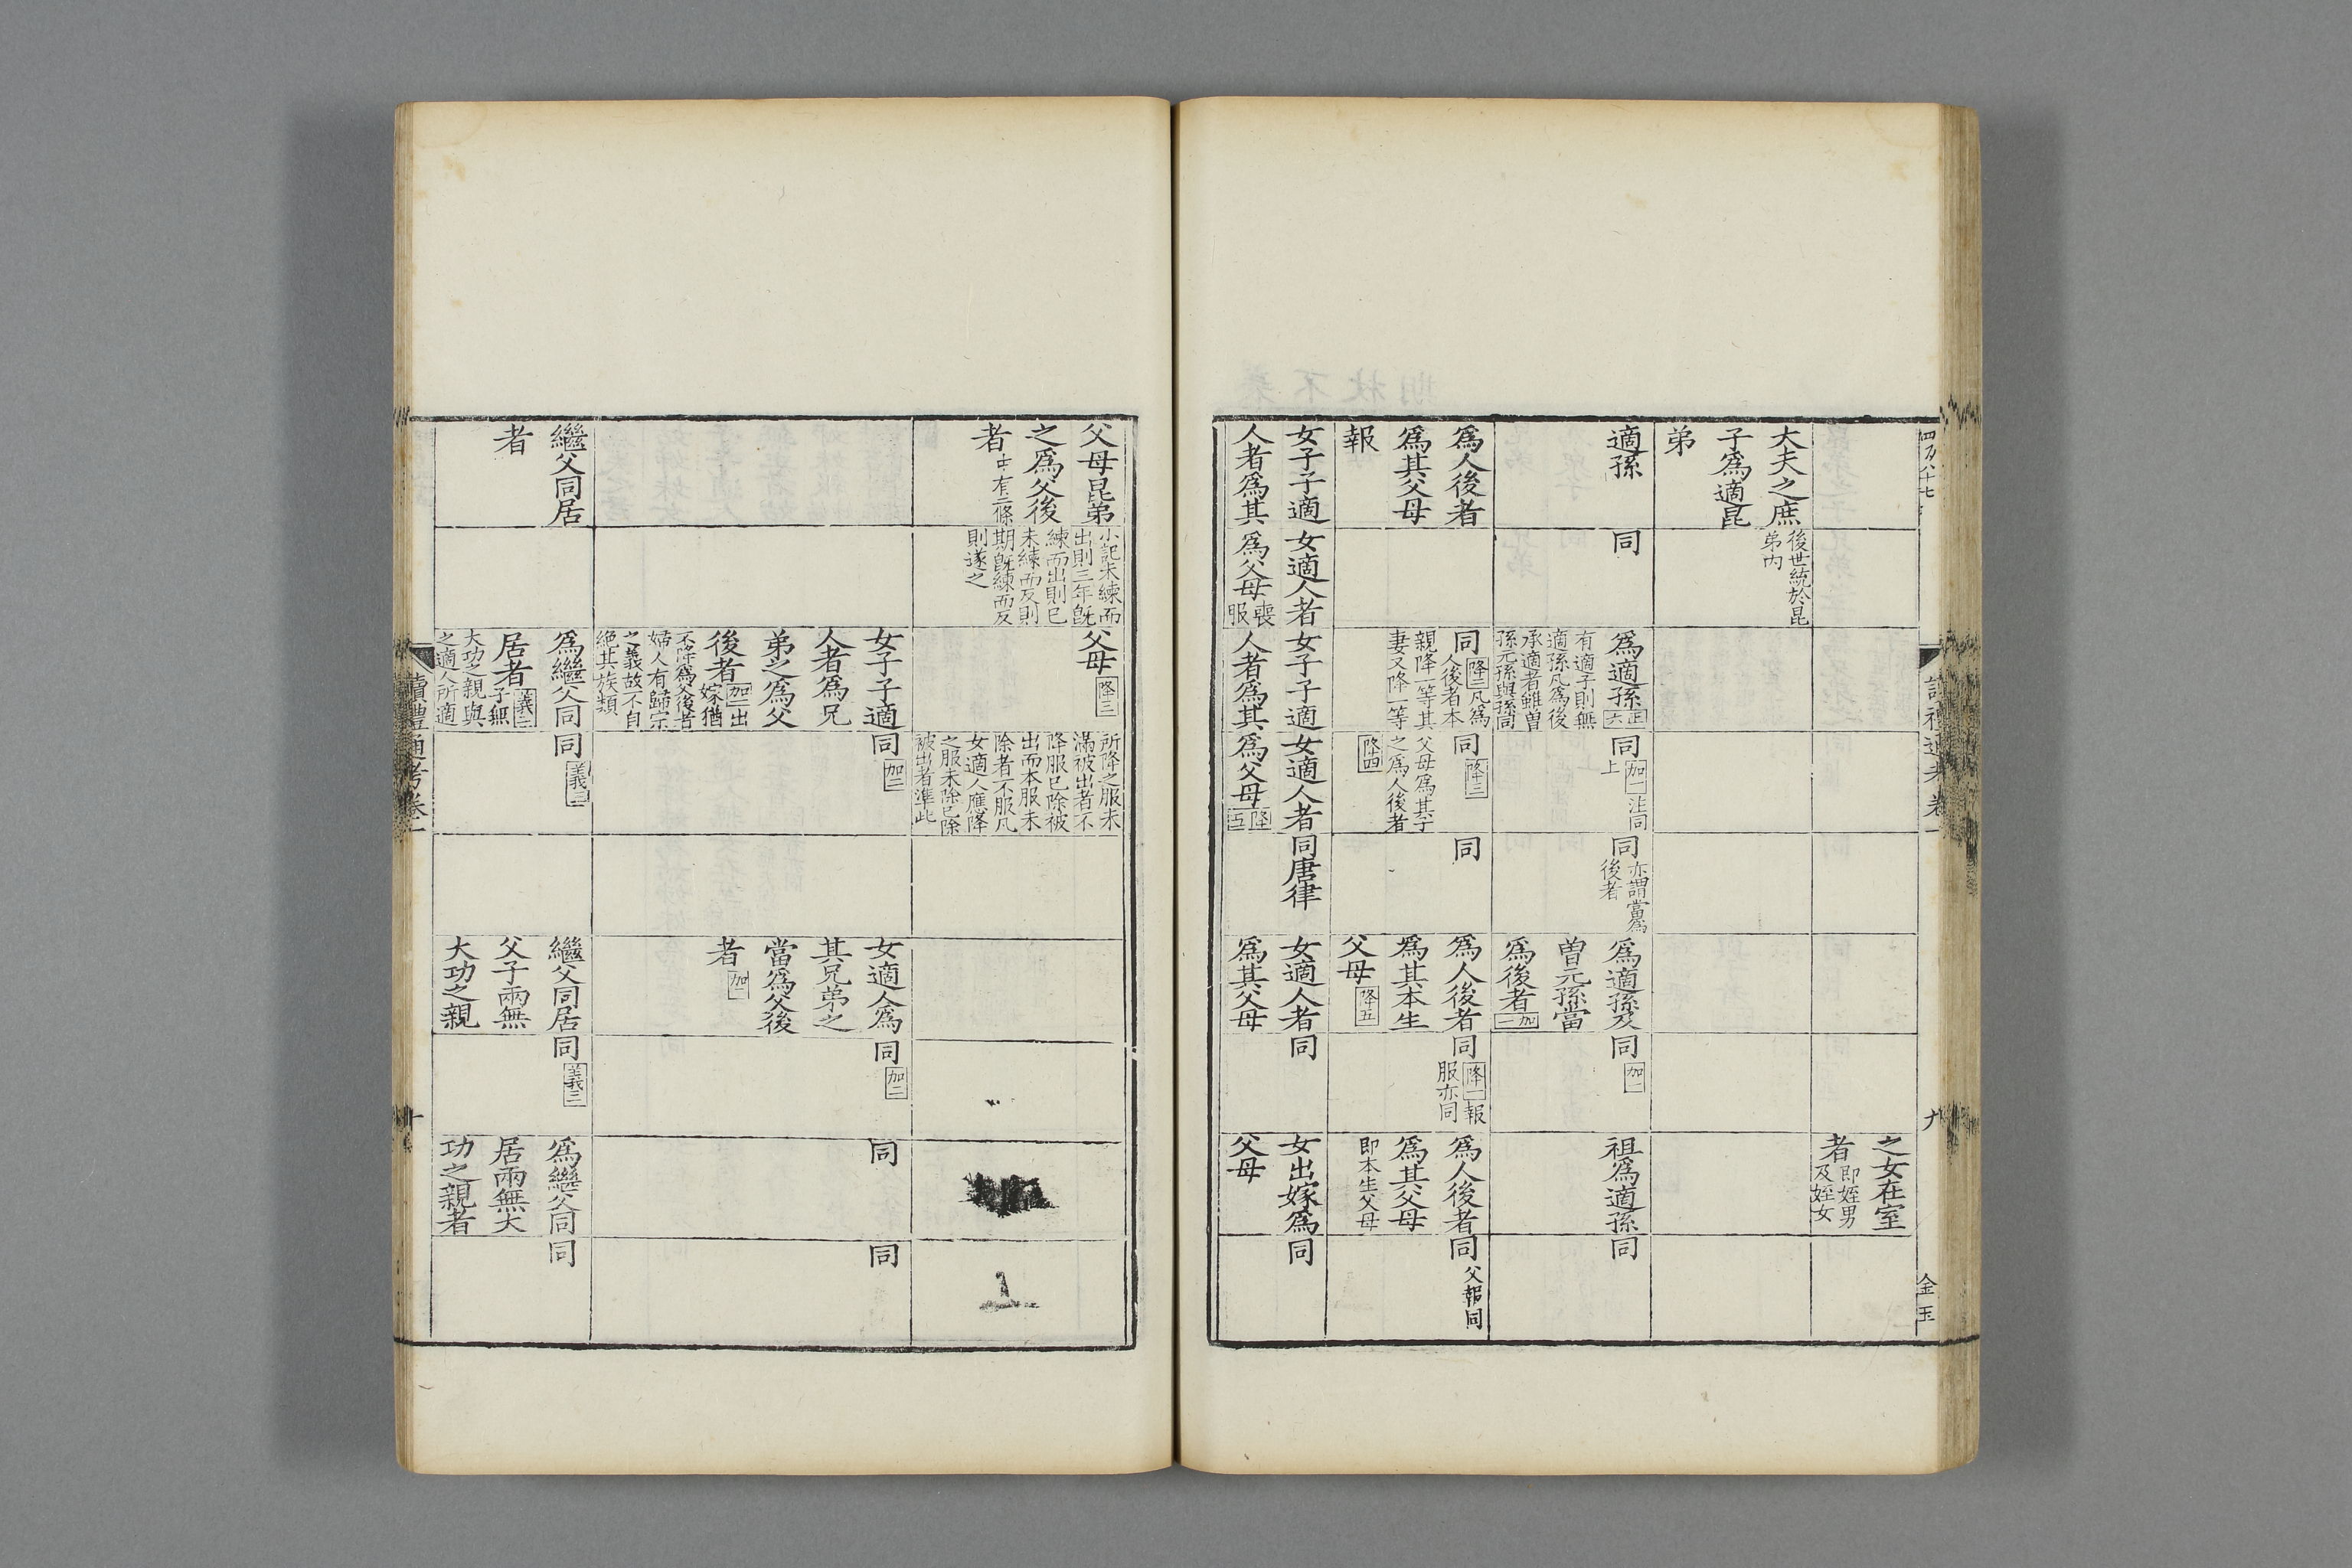 讀禮通考卷一
九
金玉
之女在室
者即姪男
及姪女
大夫之庶
子爲適昆
弟
後世統於昆
弟内
適孫
同
爲適孫正六
有適子則無
適孫凡爲後
承適者雖曽
孫元孫與孫同
同加一注同
上
同亦謂當爲
後者
爲適孫及
曽元孫當
爲後者加一
同加一
祖爲適孫
同
爲人後者
爲其父母
報
同降三凡爲
人後者本
親降一等其
妻又降一等
同降三
父母爲其子
之爲人後者
降四
同
爲人後者
爲其本生
父母降五
同降一報
服亦同
爲人後者
爲其父母
即本生父母
同父報同
女子子適
人者爲其
女適人者
爲父母喪
服
女子子適
人者爲其
女適人者
爲父母降五
同唐律
女適人者
爲其父母
同
女出嫁爲
父母
同
父母昆弟
之爲父後
者中有二條
小記未練而
出則三年旣
練而出則已
未練而反則
期旣練而反
則遂之
父母降三
所降之服未
滿被出者不
降服已除被
出而本服未
除者不服凡
女適人應降
之服未除已除
被出者準此
女子子適
人者爲兄
弟之爲父
後者加二出
嫁猶
不降爲父後者
婦人有歸宗
之義故不自
絕其族類
同加二
女適人爲
其兄弟之
當爲父後
者加一
同加二
同
同
繼父同居
者
爲繼父同
居者義二
子無
大功之親與
之適人所適
同義三
繼父同居
父子兩無
大功之親
同義三
爲繼父同
居兩無大
功之親者
同
讀禮通考卷一
十